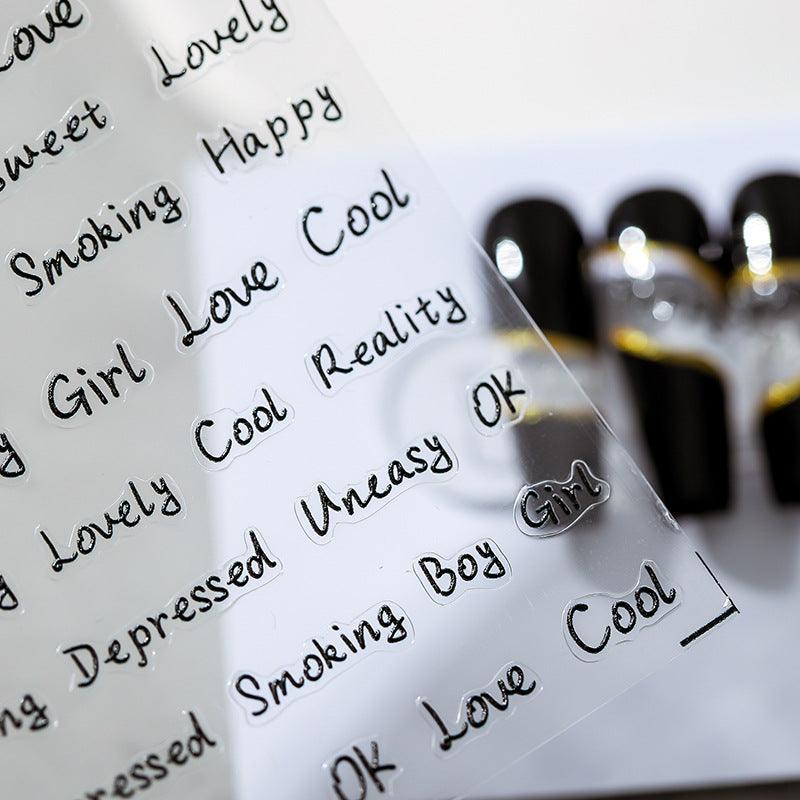 Love
sweet Lovely
Smoking Happy
y Girl Love Cool
y Lovely Cool Reality
ng Depressed Uneasy OK
ressed Smoking Boy Girl
OK Love Cool